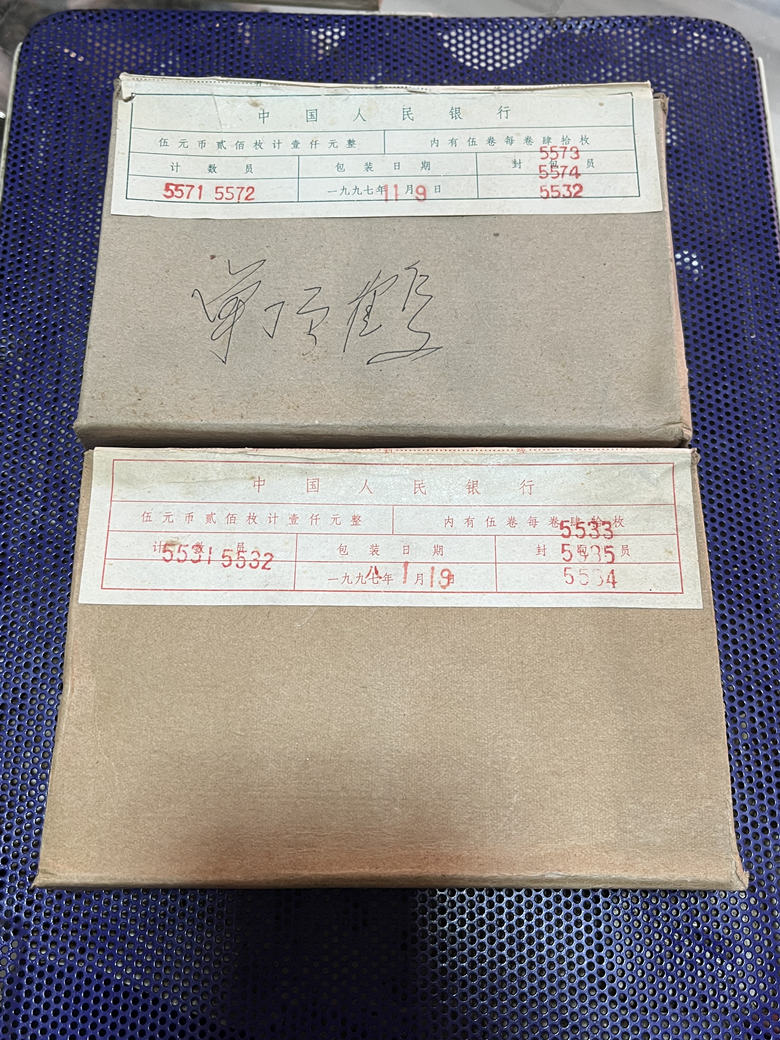 中国人民银行
伍元币贰佰枚计壹仟元整 内有伍卷每卷肆拾枚
计数员 包装日期 封包员
5573
5574
5571 5572 一九九七年11月9日 5532
顶鹤
中国人民银行
伍元币贰佰枚计壹仟元整 内有伍卷每卷肆拾枚
5533
计数员 包装日期 封包员
5531 5532 5535
一九九七八年1月19日 5534